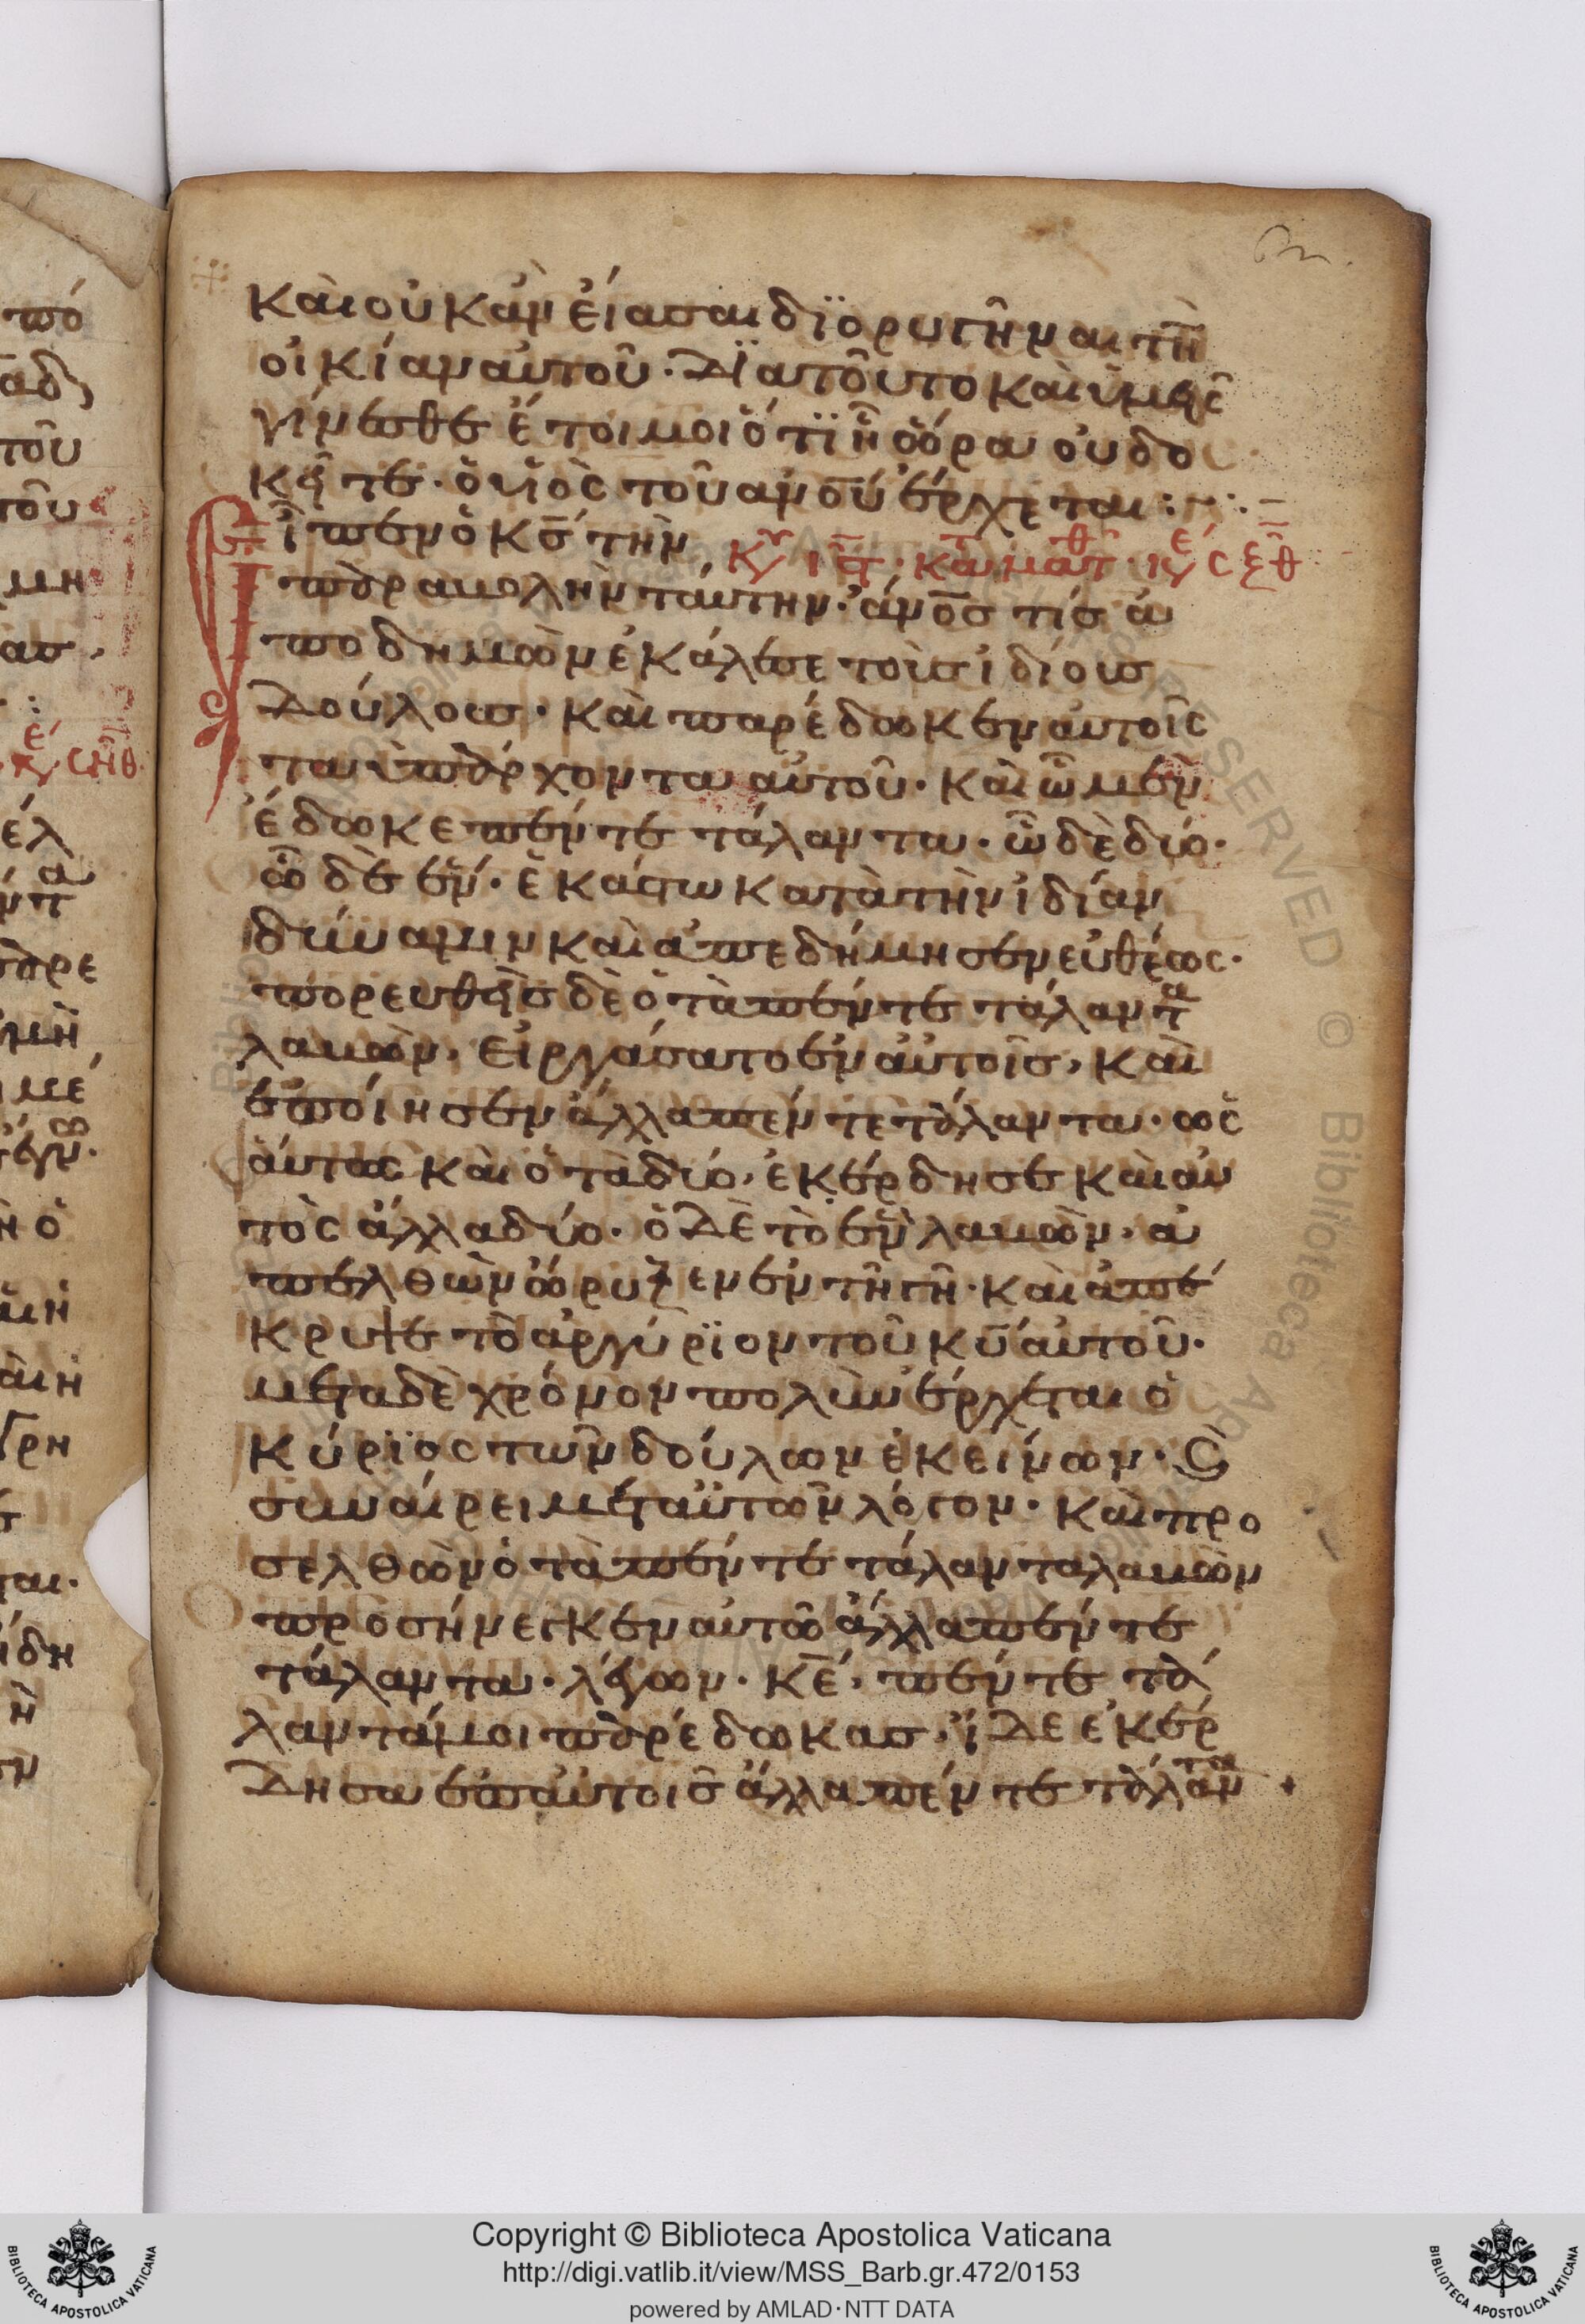 καὶ οὐκ ἂν εἴασαι διορυγῆναι τὴν
οἰκίαν αὐτοῦ· Διατοῦτο καὶ ὑμεῖς
γίνεσθε ἕτοιμοι ὅτι ἧ ὥρα οὐ δο
κεῖτε· ὁ υἱὸς τοῦ ἀνο̅υ̅ ἔρχεται :
Εἶπεν ὁ κ̅ς̅ τὴν
παραβολὴν ταύτην· ἄνο̅ς̅ τίς ἀ
ποδημῶν ἐκάλεσε τοὺς ἰδίους
Δούλους· καὶ παρέδωκεν αὐτοῖς
τὰ ὑπάρχοντα αὐτοῦ· καὶ ᾧ μὲν
ἔδωκε πέντε τάλαντα· ᾧ δὲ δύο·
ᾧ δὲ ἕν· ἑκάστω κατὰ τὴν ἰδίαν
δύναμιν καὶ ἀπεδήμησεν εὐθέως·
πορευθεὶς δὲ ὁ τὰ πέντε τάλαντα
λαβὼν, εἰργάσατο ἐν αὐτοῖς, καὶ
ἐποίησεν ἄλλα πέντε τάλαντα· ὡς
αύτως καὶ ὁ τὰ δύο, ἐκέρδησε καὶ αὐ
τὸς ἄλλα δύο· ὁ Δὲ τὸ ἓν λαβὼν, ἀ
πελθὼν ὤρυξεν ἐν τῆ γῆ· καὶ ἀπέ
κρυψε τὸ ἀργύριον τοῦ κ̅υ̅ αὐτοῦ·
μετὰ δὲ χρόνον πολὺν ἔρχεται ὁ
κύριος τῶν δούλων ἐκείνων· ϗ
συναίρει μετ᾽αὐτῶν λόγον· καὶ προ
σελθὼν ὁ τὰ πέντε τάλαντα λαβὼν
προσήνεγκεν αὐτῶ ἄλλα πέντε
τάλαντα· λέγων· κ̅ε̅, πέντε τά
λαντά μοι παρέδωκας, ἴδε ἐκέρ
Δησα ἐπ᾽αὐτοῖς ἄλλα πέντε τάλαντα
Copyright © Biblioteca Apostolica Vaticana
http://digi.vatlib.it/view/MSS_Barb.gr.472/0153
powered by AMLAD·NTT DATA
BIBLIOTECA APOSTOLICA VATICANA
BIBLIOTECA APOSTOLICA VATICANA